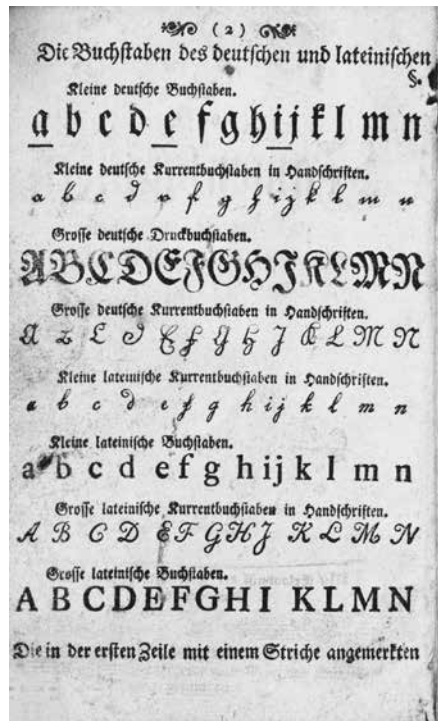 (2)
Die Buchſtaben des deutſchen und lateiniſchen
§.
Kleine deutſche Buchſtaben.
a b c d e f g h i j k l m n
Kleine deutſche Kurrentbuchſtaben in Handſchriften.
a b c d e f g h i j k l m n
Groſſe deutſche Druckbuchſtaben.
A B C D E F G H J K L M N
Groſſe deutſche Kurrentbuchſtaben in Handſchriften.
A B C D E F G H J K L M N
Kleine lateiniſche Kurrentbuchſtaben in Handſchriften.
a b c d e f g h i j k l m n
Kleine lateiniſche Buchſtaben.
a b c d e f g h i j k l m n
Groſſe lateiniſche Kurrentbuchſtaben in Handſchriften.
A B C D E F G H J K L M N
Groſſe lateiniſche Buchſtaben.
A B C D E F G H I K L M N
Die in der erſten Zeile mit einem Striche angemerkten